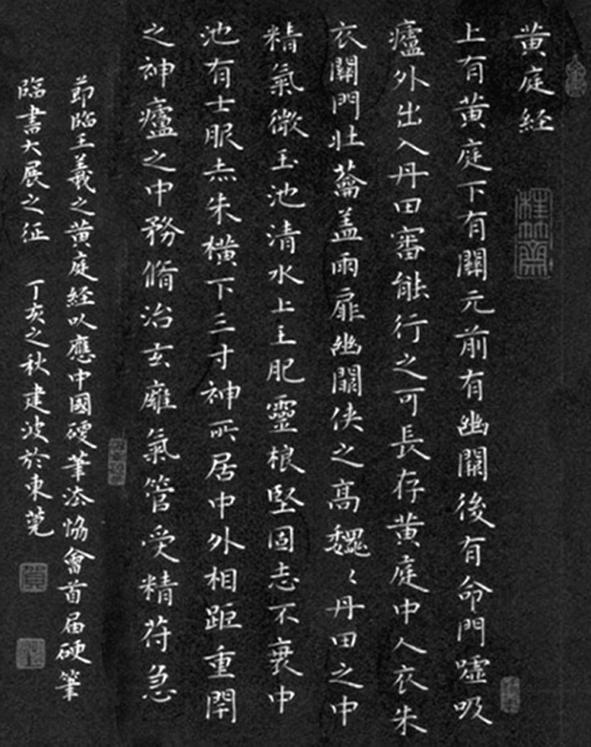 黄庭経
上有黄庭下有關元前有幽闕後有命門噓吸
廬外出入丹田審能行之可長存黄庭中人衣朱
衣關門壯蘥盖兩扉幽闕俠之高魏〻丹田之中
精氣微玉池清水上生肥靈根堅固志不衰中
池有士服赤朱橫下三寸神所居中外相距重閇
之神廬之中務脩治玄雍氣管受精苻急
節臨王羲之黄庭經以應中國硬筆法協會首届硬筆
臨書大展之征 丁亥之秋建波於東莞